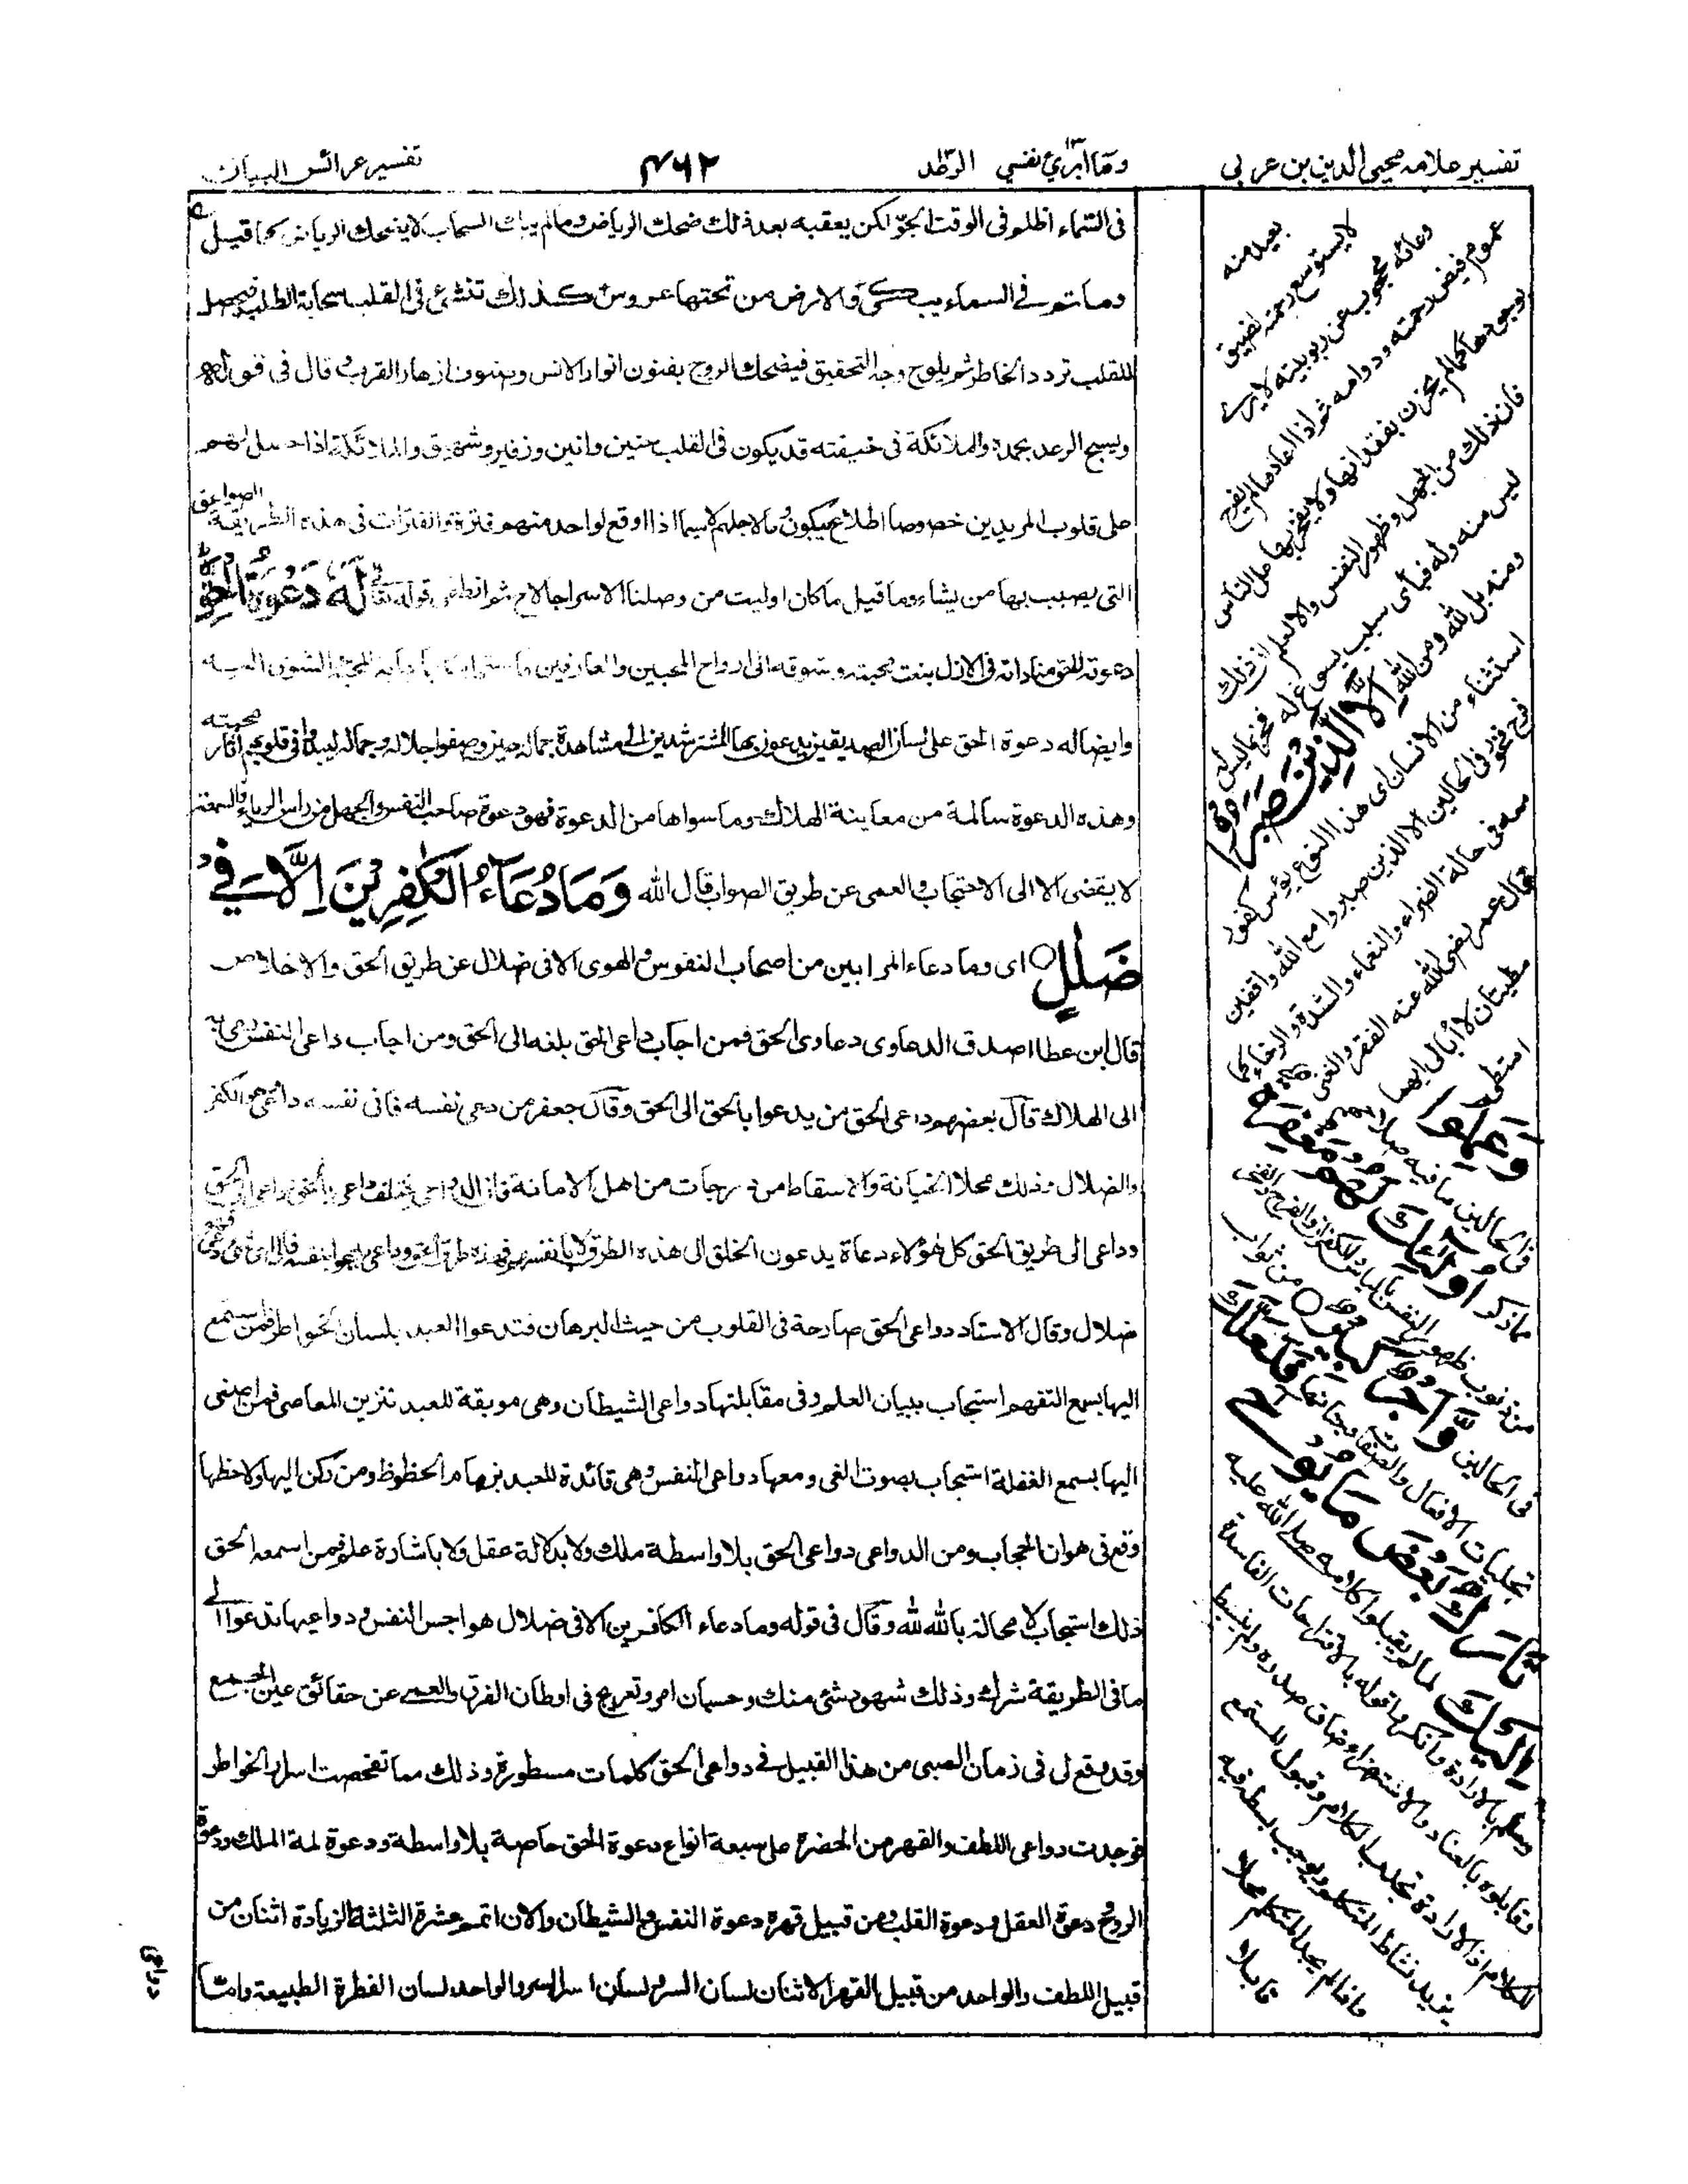 تفسير علامه محيى الدين بن عربى
وما ابرئ نفسي الرعد
٤٦٢
تفسير عرائس البيان
فى السماء اظلم فى الوقت الجو لكن يعقبه بعد ذلك ضحك الرياض وما لم يبك السحاب لا يضحك الرياض كما قيل
وماتم فى السماء يبكى والارض من تحتها عروس كذلك تنشئ فى القلب سحابة الطلب فيحصل
للقلب تردد الخاطر ثم يلوح وجه التحقيق فيضحك الروح بفنون انوار الانس وصنوف ازهار القرب قال فى قوله
ويسبح الرعد بحمده والملائكة فى خيفته قد يكون فى القلب حنين وانين وزفير وشهيق والملائكة اذا حصل لهم
على قلوب المريدين خصوصا اطلاع يبكون دما لاجلهم لاسيما اذا اوقع لواحد منهم فترة والفترات فى هذه الطريقة الصواعق
التى يصيب بها من يشاء وما قيل ما كان اوليت من وصلنا الا سراجا لاح ثم انطفى قوله تعالى له دعوة الحق
دعوته للحق مناداته فى الازل بنعت محبته وشوقه الى ارواح المحبين والعارفين
وايضا له دعوة الحق على لسان الصديقين يدعون بها المسترشدين الى مشاهدة جماله حين وصفوا جلاله وجماله ليبدوا فى قلوبهم آثار محبته
وهذه الدعوة سالمة من معاينة الهلاك وما سواها من الدعوة فهو دعوة صاحب النفس والجهل من راس الرياء والسمعة
لا يقضى الا الى الاحتجاب والعمى عن طريق الصواب قال الله وما دعاء الكفرين الا فى
ضلل ○ اى وما دعاء المرايين من اصحاب النفوس والهوى الا فى ضلال عن طريق الحق والاخلاص
قال ابن عطا اصدق الدعاوى دعاوى الحق فمن اجاب داعى الحق بلغه الى الحق ومن اجاب داعى النفس رمى به
الى الهلاك قال بعضهم داعى الحق من يدعوا بالحق الى الحق وقال جعفر من دعى نفسه فانى نفسه داعى هو الكفر
والضلال وذلك محلا الخيانة والاسقاط من درجات من اهل الامانة فان الدواعى يختلف داعى بالحق وداعى الى الحق
وداعى الى طريق الحق كل هؤلاء دعاة يدعون الخلق الى هذه الطرق لا بانفسهم فهذه طرق الحق وداعى يدعوا بنفسه فالى اى شئ دعى فهو
ضلال وقال الاستاد دواعى الحق صارحة فى القلوب من حيث البرهان فتدعوا العبد بلسان الخواطر فمن استمع
اليها بسمع التفهم استجاب ببيان العلم وفى مقابلتها دواعى الشيطان وهى موبقة للعبد تتزين المعاصى فمن اصغى
اليها بسمع الغفلة استجاب بصوت الغى ومعها دواعى النفس وهى قائدة للعبد بزمام الحظوظ ومن ركن اليها ولاحظها
وقع فى هوان الحجاب ومن الدواعى دواعى الحق بلا واسطة ملك ولا بدلالة عقل ولا باشارة علم فمن اسمعه الحق
ذلك استجاب لا محالة بالله لله وقال فى قوله وما دعاء الكافرين الا فى ضلال هواجس النفس ودواعيها تدعوا الى
ما فى الطريقة شرك وذلك شهود شئ منك وحسبان امر وتعريج فى اوطان الفرق والعمى عن حقائق عين الجمع
وقد يقع لى فى زمان الصبى من هذا القبيل فى دواعى الحق كلمات مسطورة وذلك مما تفحصت اسرار الخواطر
فوجدت دواعى اللطف والقهر من الحضرة على سبعة انواع دعوة الحق خاصة بلا واسطة ودعوة لمة الملك ودعوة
الروح دعوة العقل ودعوة القلب ومن قبيل قهره دعوة النفس والشيطان والان اتم عشرة الثلثة الزيادة اثنان من
قبيل اللطف والواحد من قبيل القهر الاثنان لسان السر ولسان اسرار السر والواحد لسان الفطرة الطبيعة واما
دواعى
بعيد منه
لا يستوسع رحمته لضيق
وعائه محجوب عن ربوبيته لا يرى
عموم فيض رحمته ودوامه ثم اذا اعادها لم يفرح
بوجودها كما لم يحزن بفقدانها ولا يفخر بها على الناس
فان ذلك من الجهل وظهور النفس والا لعلم ان ذلك
ليس منه وله فباى سبب يسوغ له فخر بما ليس له
ومنه بل لله ومن الله الا الذين صبروا
استثناء من الانسان اى هذا النوع يؤس كفور
فرح فخور فى الحالين الا الذين صبروا مع الله واقفين
معه فى حالة الضراء والنعماء والشدة والرخاء كما
قال عمر رضى الله عنه الفقر والغنى
مطيتان لا ابالى ايهما
امتطى
وعملوا
فى الحالين ما فيه صلاحهم
مما ذكر اولئك لهم مغفرة
من ذنوب ظهور النفس باليأس والكفران والفرح والفخر
فى الحالين واجر كبير ○ من ثواب
تجليات الافعال والصفات وجناتها فلعلك
تارك بعض ما يوحى
اليك لما لم يقبلوا كلامه صلى الله عليه
وسلم بالارادة وانكروا قوله بالاقتراحات الفاسدة
وقابلوه بالعناد والاستهزاء ضاق صدره ولم ينبسط
للكلام اذ الارادة تجلب الكلام وقبول المستمع
يزيد نشاط المتكلم ويوجب بسطه فيه
واذا لم يجد المتكلم محلا
قابلا